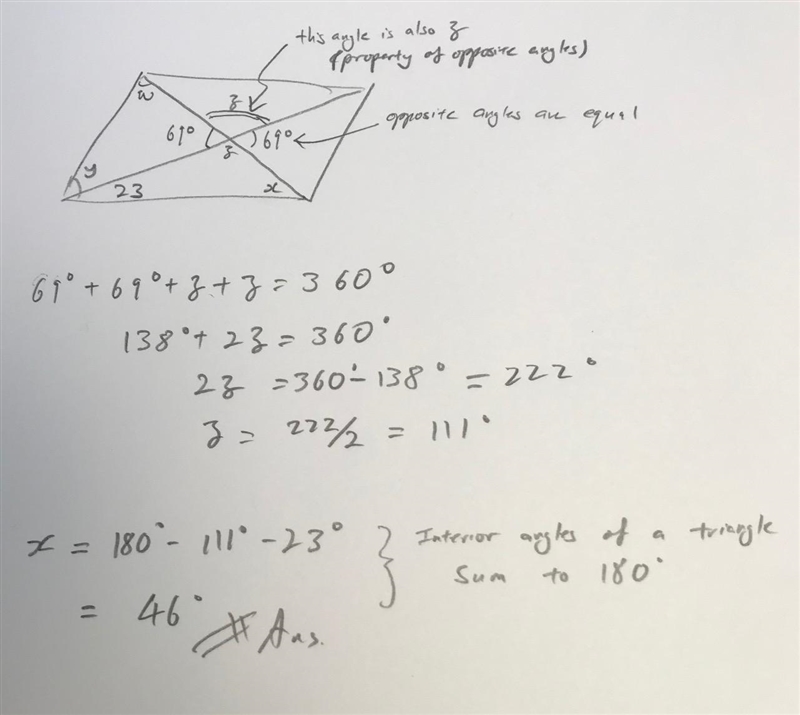 this angle is also z
(property of opposite angles)
w
z
69°
69°
opposite angles are equal
z
y
23
x
69° + 69° + z + z = 360°
138° + 2z = 360°
2z = 360° - 138° = 222°
z = 222/2 = 111°
x = 180° - 111° - 23° } Interior angles of a triangle
sum to 180°
= 46° # Ans.